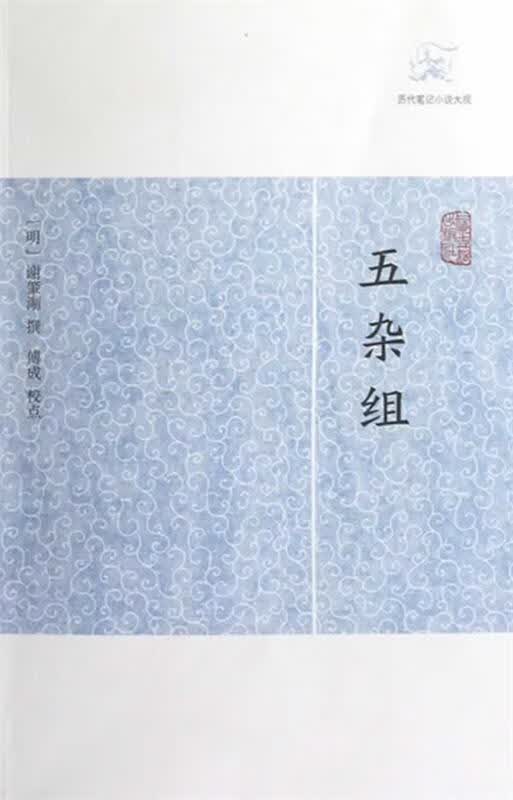 历代笔记小说大观
五杂组
[明] 谢肇淛 撰 傅成 校点